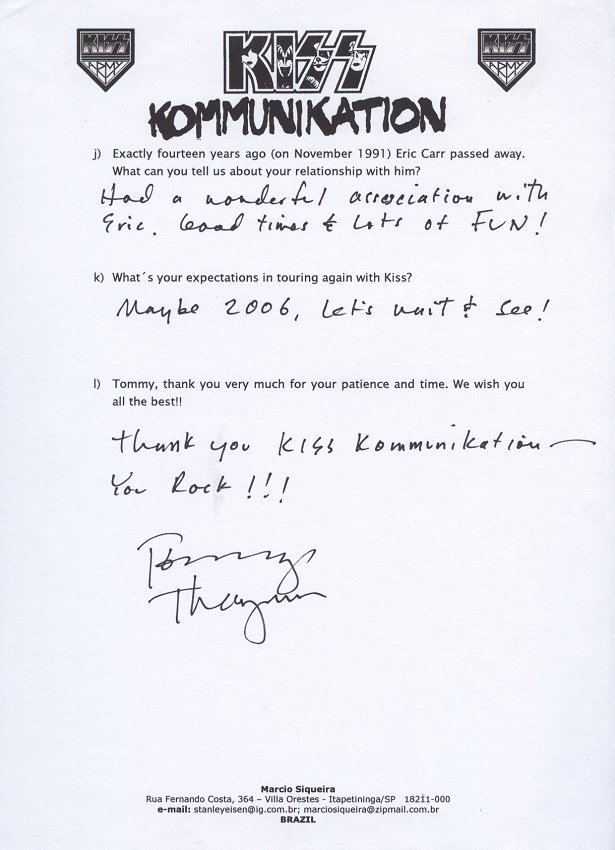 KISS ARMY
KISS
KISS ARMY
KOMMUNIKATION
j) Exactly fourteen years ago (on November 1991) Eric Carr passed away.
What can you tell us about your relationship with him?
Had a wonderful association with
Eric. Good times & Lots of FUN!
k) What´s your expectations in touring again with Kiss?
Maybe 2006, Let's wait & see!
l) Tommy, thank you very much for your patience and time. We wish you
all the best!!
Thank you KISS Kommunikation —
You Rock!!!
Tommy
Thayer
Marcio Siqueira
Rua Fernando Costa, 364 – Villa Orestes - Itapetininga/SP 18211-000
e-mail: stanleyeisen@ig.com.br; marciosiqueira@zipmail.com.br
BRAZIL